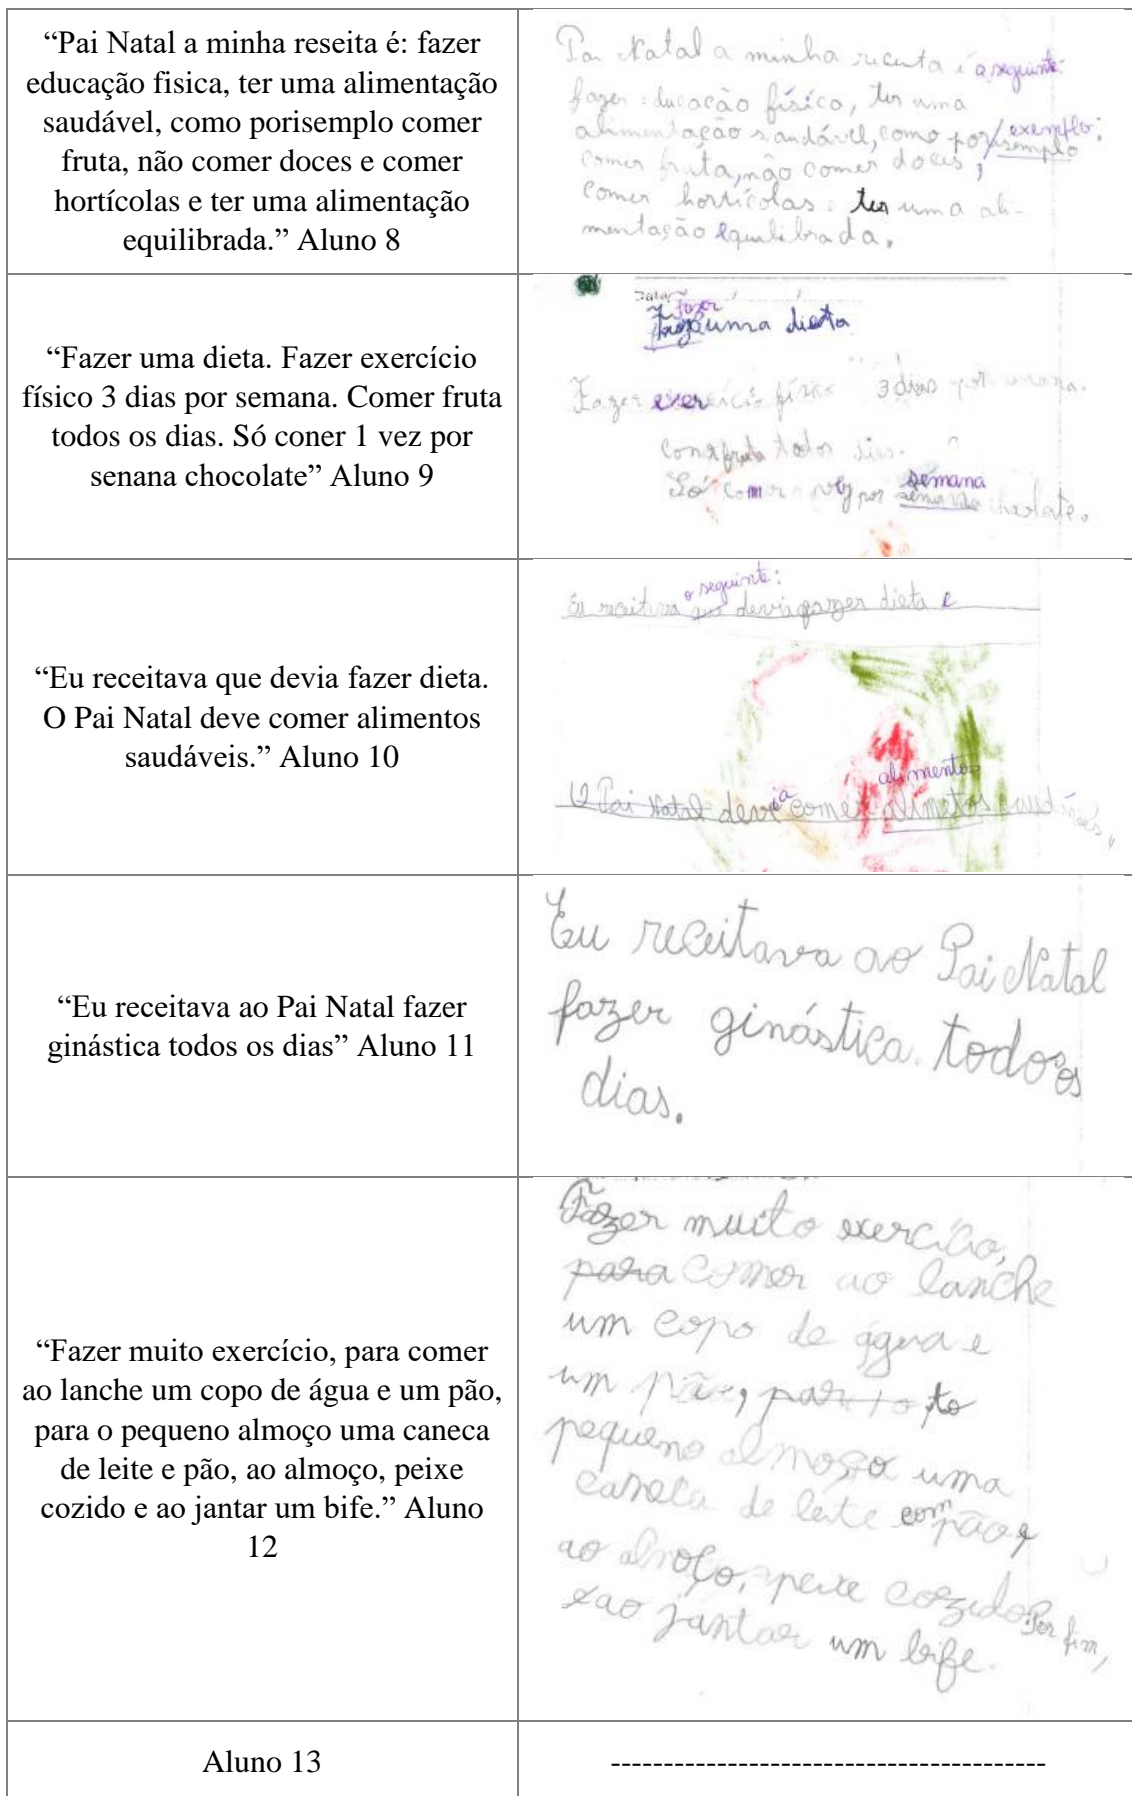 “Pai Natal a minha reseita é: fazer
educação fisica, ter uma alimentação
saudável, como porisemplo comer
fruta, não comer doces e comer
hortícolas e ter uma alimentação
equilibrada.” Aluno 8
Pai Natal a minha receita é a seguinte:
fazer educação física, ter uma
alimentação saudável, como por exemplo:
isemplo
comer fruta, não comer doces,
comer hortícolas ter uma ali-
mentação equilibrada.
“Fazer uma dieta. Fazer exercício
físico 3 dias por semana. Comer fruta
todos os dias. Só coner 1 vez por
senana chocolate” Aluno 9
Fazer
uma dieta
Fazer exercício físico 3 dias por
fruta todos dias.
semana
Só comer por chocolate.
“Eu receitava que devia fazer dieta.
O Pai Natal deve comer alimentos
saudáveis.” Aluno 10
o seguinte:
Eu receitava que devia fazer dieta e
alimentos
O Pai Natal devia comer alimetos
“Eu receitava ao Pai Natal fazer
ginástica todos os dias” Aluno 11
Eu receitava ao Pai Natal
fazer ginástica todos os
dias.
“Fazer muito exercício, para comer
ao lanche um copo de água e um pão,
para o pequeno almoço uma caneca
de leite e pão, ao almoço, peixe
cozido e ao jantar um bife.” Aluno
12
Fazer muito exercício,
para comer ao lanche
um copo de água e
um pão, para o
pequeno almoço uma
caneca de leite com pão e
ao almoço, peixe cozido. Por fim,
ao jantar um bife.
Aluno 13
------------------------------------------